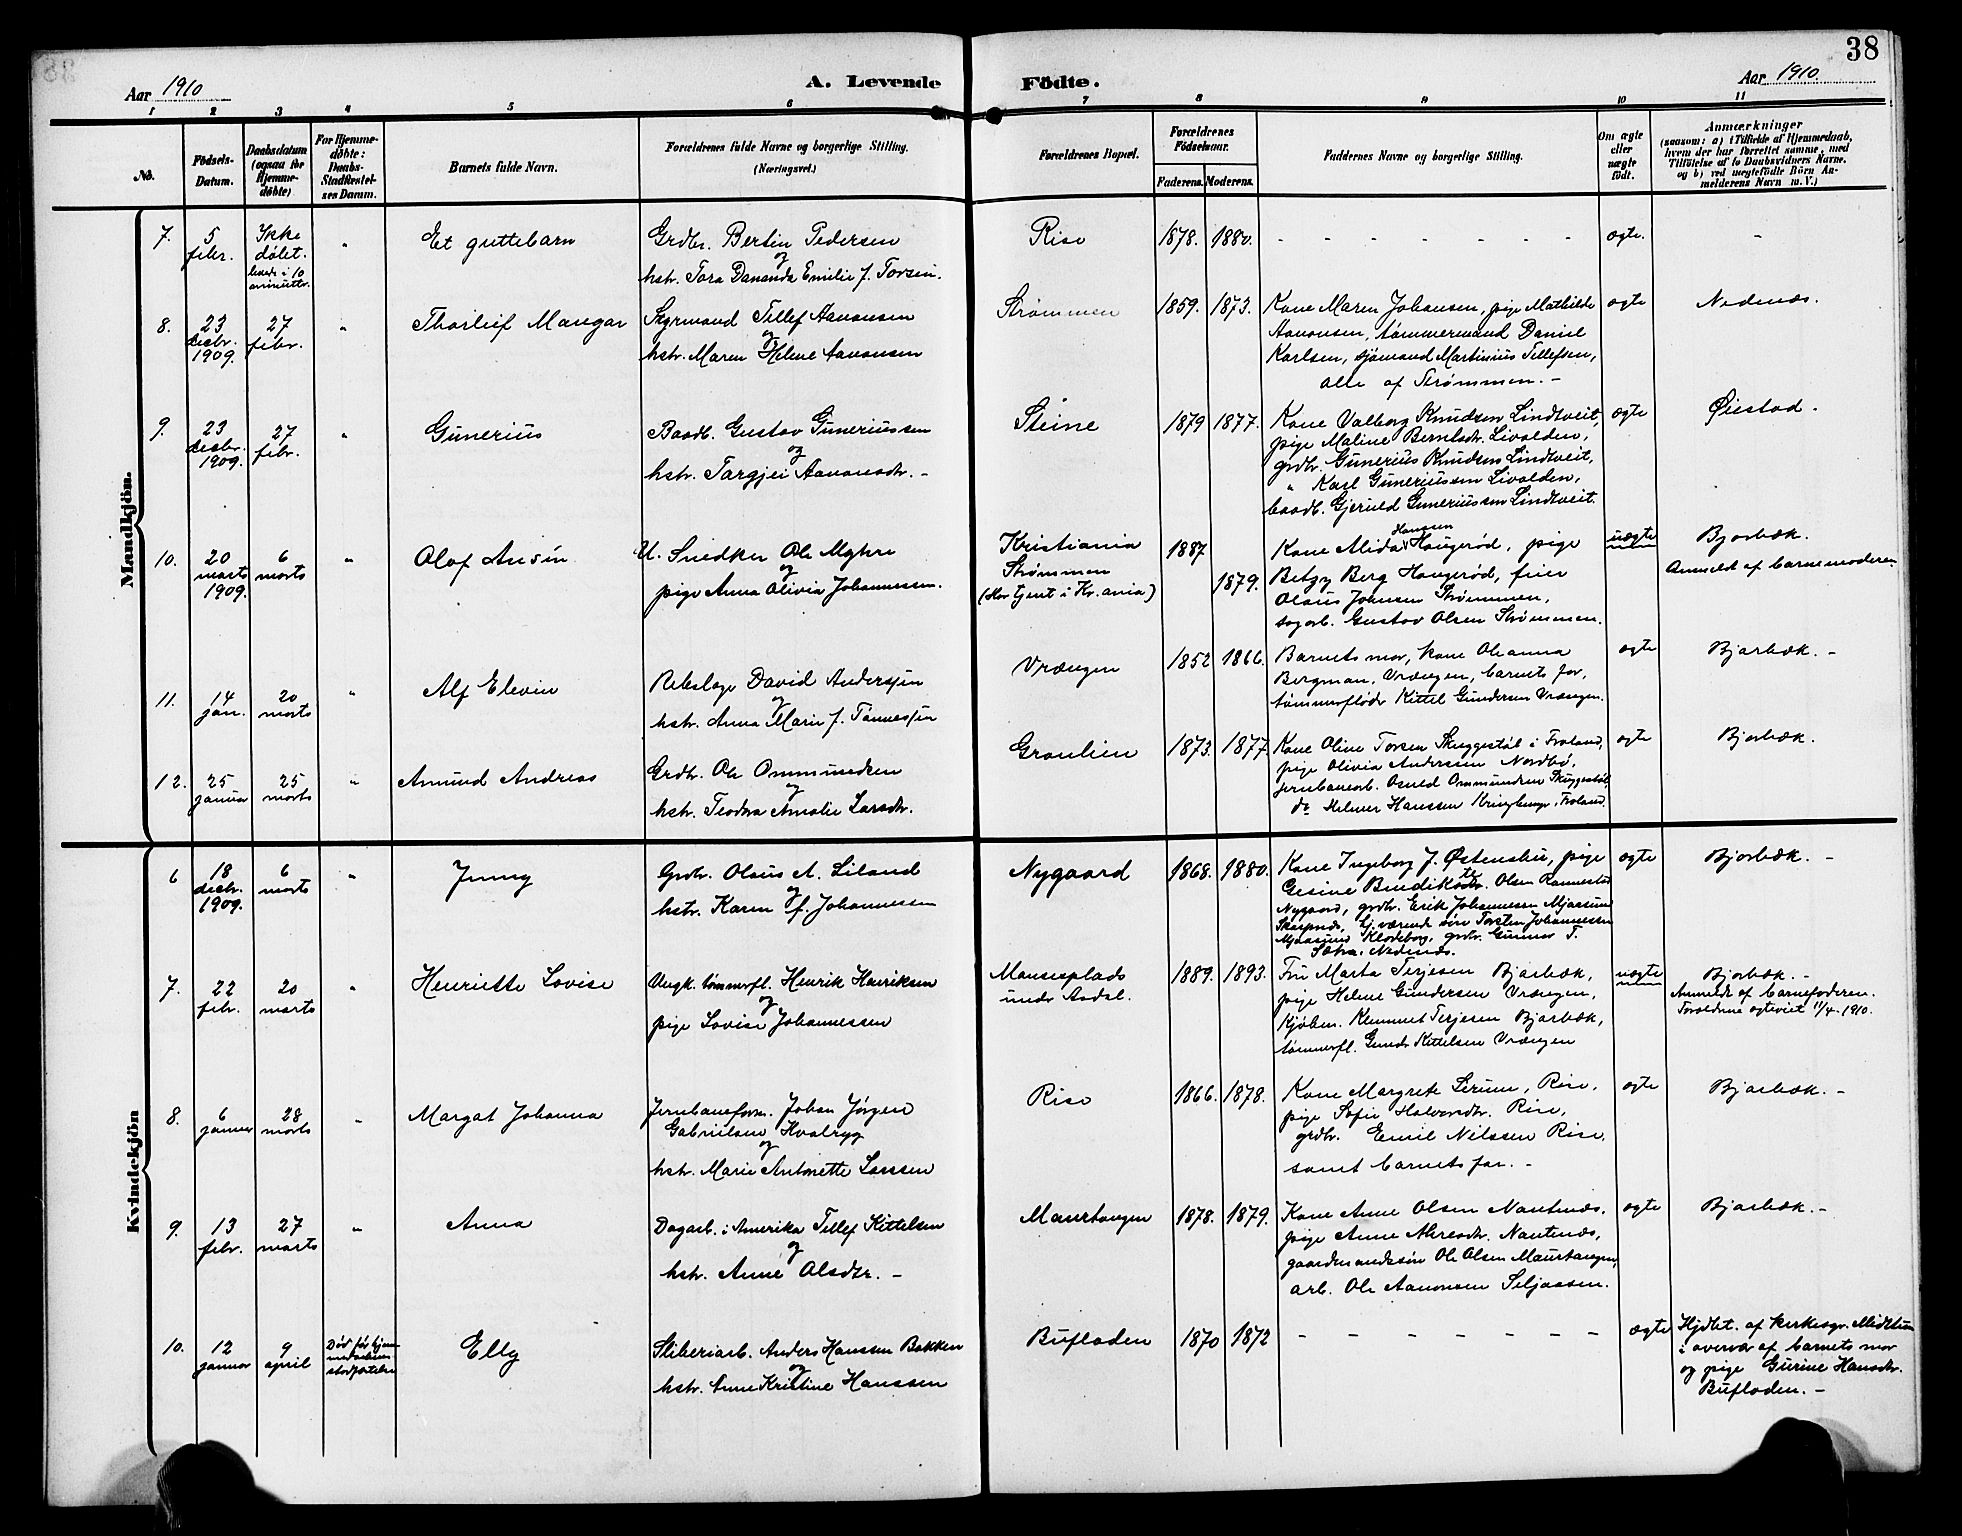 38
Aar 1910
A. Levende
Födte.
Aar 1910
1 2 3 4 5 6 7 8 9 10 11
No.
Födsels-
Datum.
Daabsdatum
(ogsaa for
Hjemme-
döbte)
For Hjemme-
döbte:
Daabs-
Stadfæstel-
ses Datum.
Barnets fulde Navn.
Forældrenes fulde Navne og borgerlige Stilling.
(Næringsvei.)
Forældrenes Bopæl.
Forældrenes
Födselsaar.
Faderens.
Moderens.
Faddernes Navne og borgerlige Stilling.
Om ægte
eller
uægte
födt.
Anmærkninger
(saasom: a) i Tilfælde af Hjemmedaab,
hvem der har forrettet samme, med
Tilföielse af to Daabsvidners Navne,
og b) ved uægtefödte Börn An-
melderens Navn m. V.)
Mandkjön.
7.
5
febr.
Ikke
døbt.
levede i 10
minutter.
"
Et guttebarn
Grdbr. Bertin Pedersen
og
hstr. Tora Emilie f. Torsen.
Rise
1878.
1880.
- - - - - - - -
ægte.
-
8.
23
desbr.
1909.
27
febr.
"
Thorlief Mangar
Styrmand Tellef Aanonsen
og
hstr. Maren Helene Aanonsen
Strømmen
1859.
1873.
Kone Maren Johansen, pige Mathilde
Aanonsen, tømmermand Daniel
Karlsen, sjømand Martinius Tellefsen,
alle af Strømmen. -
ægte
Nedenæs.
9.
23
desbr.
1909.
27
febr.
"
Gunerius
Baadb. Gustav Guneriussen
og
hstr. Targjei Aanonsdtr. -
Steine
1879
1877.
Kone Valborg Knudsen Lindtveit,
pige Maline Berntsdtr. Livolden,
grdbr. Gunerius Knudsen Lindtveit,
" Karl Guneriussen Livolden,
baadb. Gjeruld Guneriussen Lindtveit.
ægte
Øiestad.
10.
20
marts
1909.
6
marts
"
Olaf Ansin
U. Snedker Ole Myhre
og
pige Anna Olivia Johannessen.
Kristiania
Strømmen
1887
1879.
Kone Alida Hanssen Haugerød, pige
Betzy Berg Haugerød, feier
Olaus Johnsen Strømmen,
sagarb. Gustav Olsen Strømmen.
uægte
Bjorbæk.
Anmeldt af barnemoderen
11.
14
jan.
20
marts
"
Alf Elevin
Rebslager David Anderssen
og
hstr. Anna Marie f. Tønnessen
Vrængen
1852
1866.
Barnets mor, kone Oleanna
Bergman, Vrængen, barnets far,
tømmerfløder Kittel Gundersen Vrængen.
ægte
Bjorbæk. -
12.
25
januar
25
marts
"
Amund Andreas
Grdbr. Ole Ommundsen
og
hstr. Teodora Amalie Larsdtr.
Graulien
1873.
1877.
Kone Oline Torsen Skyggestøl i Froland,
pige Olivia Andersen Nordbø,
jernbanearb. Osuld Ommundsen Skyggestøl,
do Helmer Hanssen Froland.
ægte
Bjorbæk.
Kvindekjön
6
18
desbr.
1909.
6
marts
"
Jenny
Grdbr. Olaus A. Liland
og
hstr. Karen f. Johannessen
Nygaard
1868.
1880.
Kone Ingeborg J. Østenshei, pige
Gesine Bendiksdtr. Olsen Rannestad
Nygaard, grdbr. Erik Johannessen Mjaasund
Torsten Johannessen
Mjaasund Klodeborg, grdbr. Gunnar T.
Sætra, Nedenæs.
ægte
Bjorbæk. -
7.
22
febr.
20
marts
"
Henriette Lovise
Ungk. tømmerfl. Henrik Henriksen
og
pige Lovise Johannessen
Mauseplads
under Asdal.
1889.
1893.
Fru Marta Terjesen Bjorbæk,
pige Helene Gundersen Vrængen,
Kjøbm. Klemmet Terjesen Bjorbæk,
tømmerfl. Gunder Kittelsen Vrængen
uægte
Bjorbæk. -
Anmeldt af barnefaderen.
Forældrene egteviet 11/4-1910.
8.
6
januar
28
marts
"
Margot Johanna
Jernbaneform. Johan Jørgen
Gabrielsen Hvalryg
og
hstr. Marie Antonette Larssen
Rise
1866.
1878.
Kone Margrete Serine, Rise,
pige Sofie Halvorsdtr. Rise,
grdbr. Emil Nilssen Rise,
samt barnets far. -
ægte
Bjorbæk. -
9.
13
febr.
27
marts
"
Anna
Dagarb. i Amerika Tellef Kittelsen
og
hstr. Anne Olsdtr. -
Maurtangen
1878.
1879.
Kone Anne Olsen Nautenæs,
pige Anne Nautenæs,
gaardmandssøn Ole Olsen Maurtangen,
arb. Ole Aanonsen Seljaasen.
ægte
Bjorbæk. -
10.
12
januar
9
april
Død før hjem-
medaaben
stadfæstedes
Elly
Sliberiarb. Anders Hanssen Bakken
og
hstr. Anne Kristine Hanssen
Bufladen
1870
1872
- - - - - - -
ægte
Hjdbt. af kirkesgr.
i overvær af barnets mor
og pige Gurine Hansdtr.
Bufladen. -